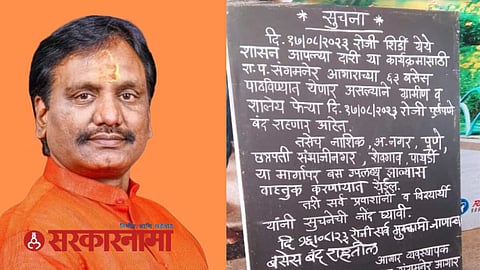 सुचना
दि. १७/०८/२०२३ रोजी शिर्डी येथे
शासन आपल्या दारी या कार्यक्रमासाठी
रा.प. संगमनेर आगाराच्या ६३ बसेस
पाठविण्यात येणार असल्याने ग्रामीण व
शालेय फेऱ्या दि. १७/०८/२०२३ रोजी पुर्णपणे
बंद राहणार आहेत.
तसेच नाशिक, अ.नगर, पुणे,
छत्रपती संभाजीनगर, शेवगाव, पाथर्डी
या मार्गावर बस उपलब्ध झाल्यास
वाहतुक करण्यात येईल.
तरी सर्व प्रवाशांनी व विद्यार्थी
यांनी सुचनेची नोंद घ्यावी.
दि. १६/०८/२३ रोजी सर्व मुक्कामी जाणाऱ्या
बसेस बंद राहतील
आगार व्यवस्थापक
संगमनेर आगार
सरकारनामा